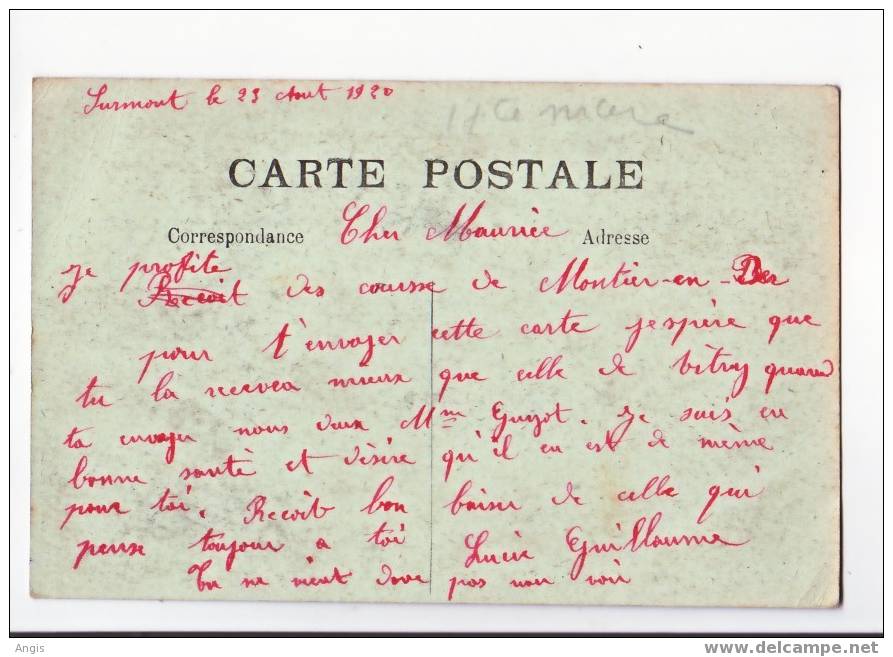 Surmont le 23 Aout 1920
CARTE POSTALE
Correspondance Cher Maurice Adresse
je profite
Recoit des course de Montier-en-Der
pour t'envoyer cette carte j'espère que
tu la recevea mieux que celle de Vitry quand
ta envoyer nous deux Mme Guyot. je suis en
bonne santé et désire qu'il en est de même
pour toi. Recoit bon baiser de celle qui
pense toujour a toi Lucie Guillaume
Tu ne vient donc pas nou voir
Angis
www.delcampe.net